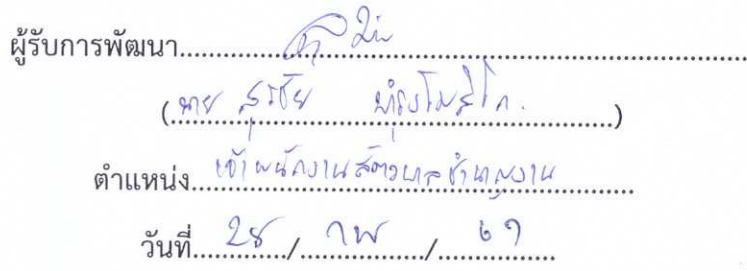 ผู้รับการพัฒนา
(นาย สุรชัย )
ตำแหน่ง เจ้าพนักงานสัตวบาลชำนาญงาน
วันที่ 28 / กพ / ๖๑